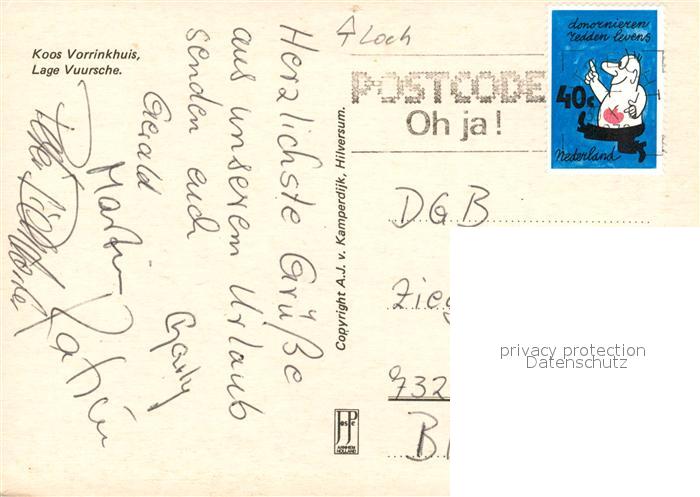 Koos Vorrinkhuis,
Lage Vuursche.
Herzlichste Grüße
aus unserem Urlaub
senden euch
Gerald
Martin
Copyright A.J. v. Kamperdijk, Hilversum.
JosPe
ARNHEM
HOLLAND
Loch
POSTCODE
Oh ja!
donornieren
redden levens
40c
Nederland
DGB
Zieg
732
B
privacy protection
Datenschutz